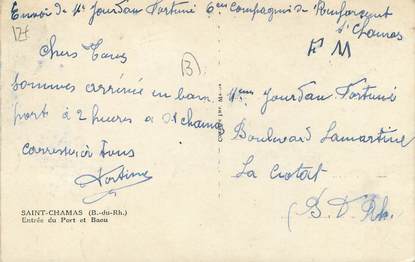 Envoi de Mr Jourdan Fortuné 6em Compagnie de Renforcement
St Chamas
F M
Chers Tous
sommes arrivé en bon
port à 2 heures a St Chamas
Caresse à Tous
Fortuné
Mme Jourdan Fortuné
Boulevard Lamartine
La Ciotat
(B. D. Rh.)
SAINT-CHAMAS (B.-du-Rh.)
Entrée du Port et Baou